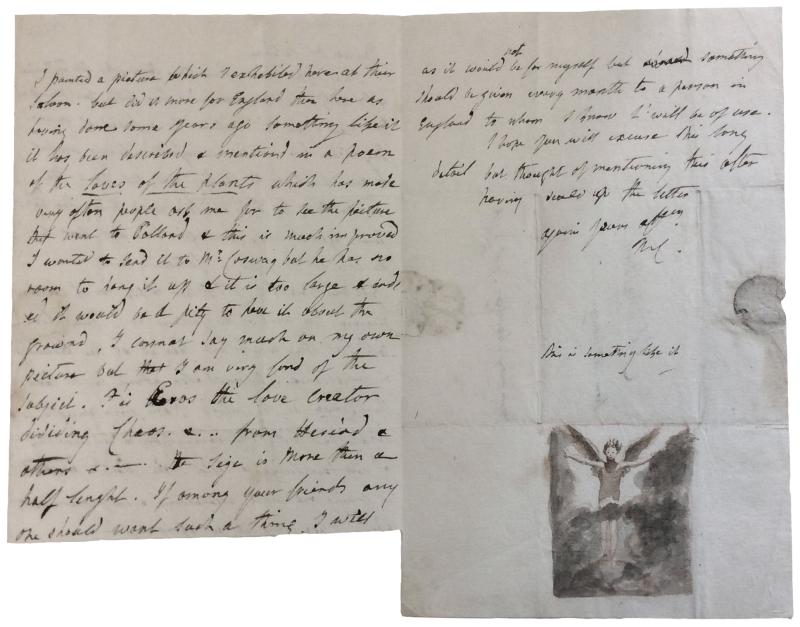 I painted a picture which I exhibited here at their
Saloon. but did it more for England then here as
having done some years ago something like it
it has been described & mentiond in a poem
of the Loves of the plants which has made
very often people ask me for to see the picture
went to Polland & this is much improved
I wanted to send it to Mr. Cosway but he has no
room to hang it up & it is too large & inde
ed it would be a pity to have it about the
ground, I cannot say much on my own
picture but I am very fond of the
subject. T'is Eros the love Creator
dividing Chaos. &.. from Hesiod &
others &.— size is more then a
half lenght. If among your friends any
one should want such a thing, I will
as it would not be for myself but something
should be given every month to a person in
England to whom I know it will be of use.
I hope you will excuse this long
detail but thought of mentioning this after
having seald up the letter
again yours
this is something like it